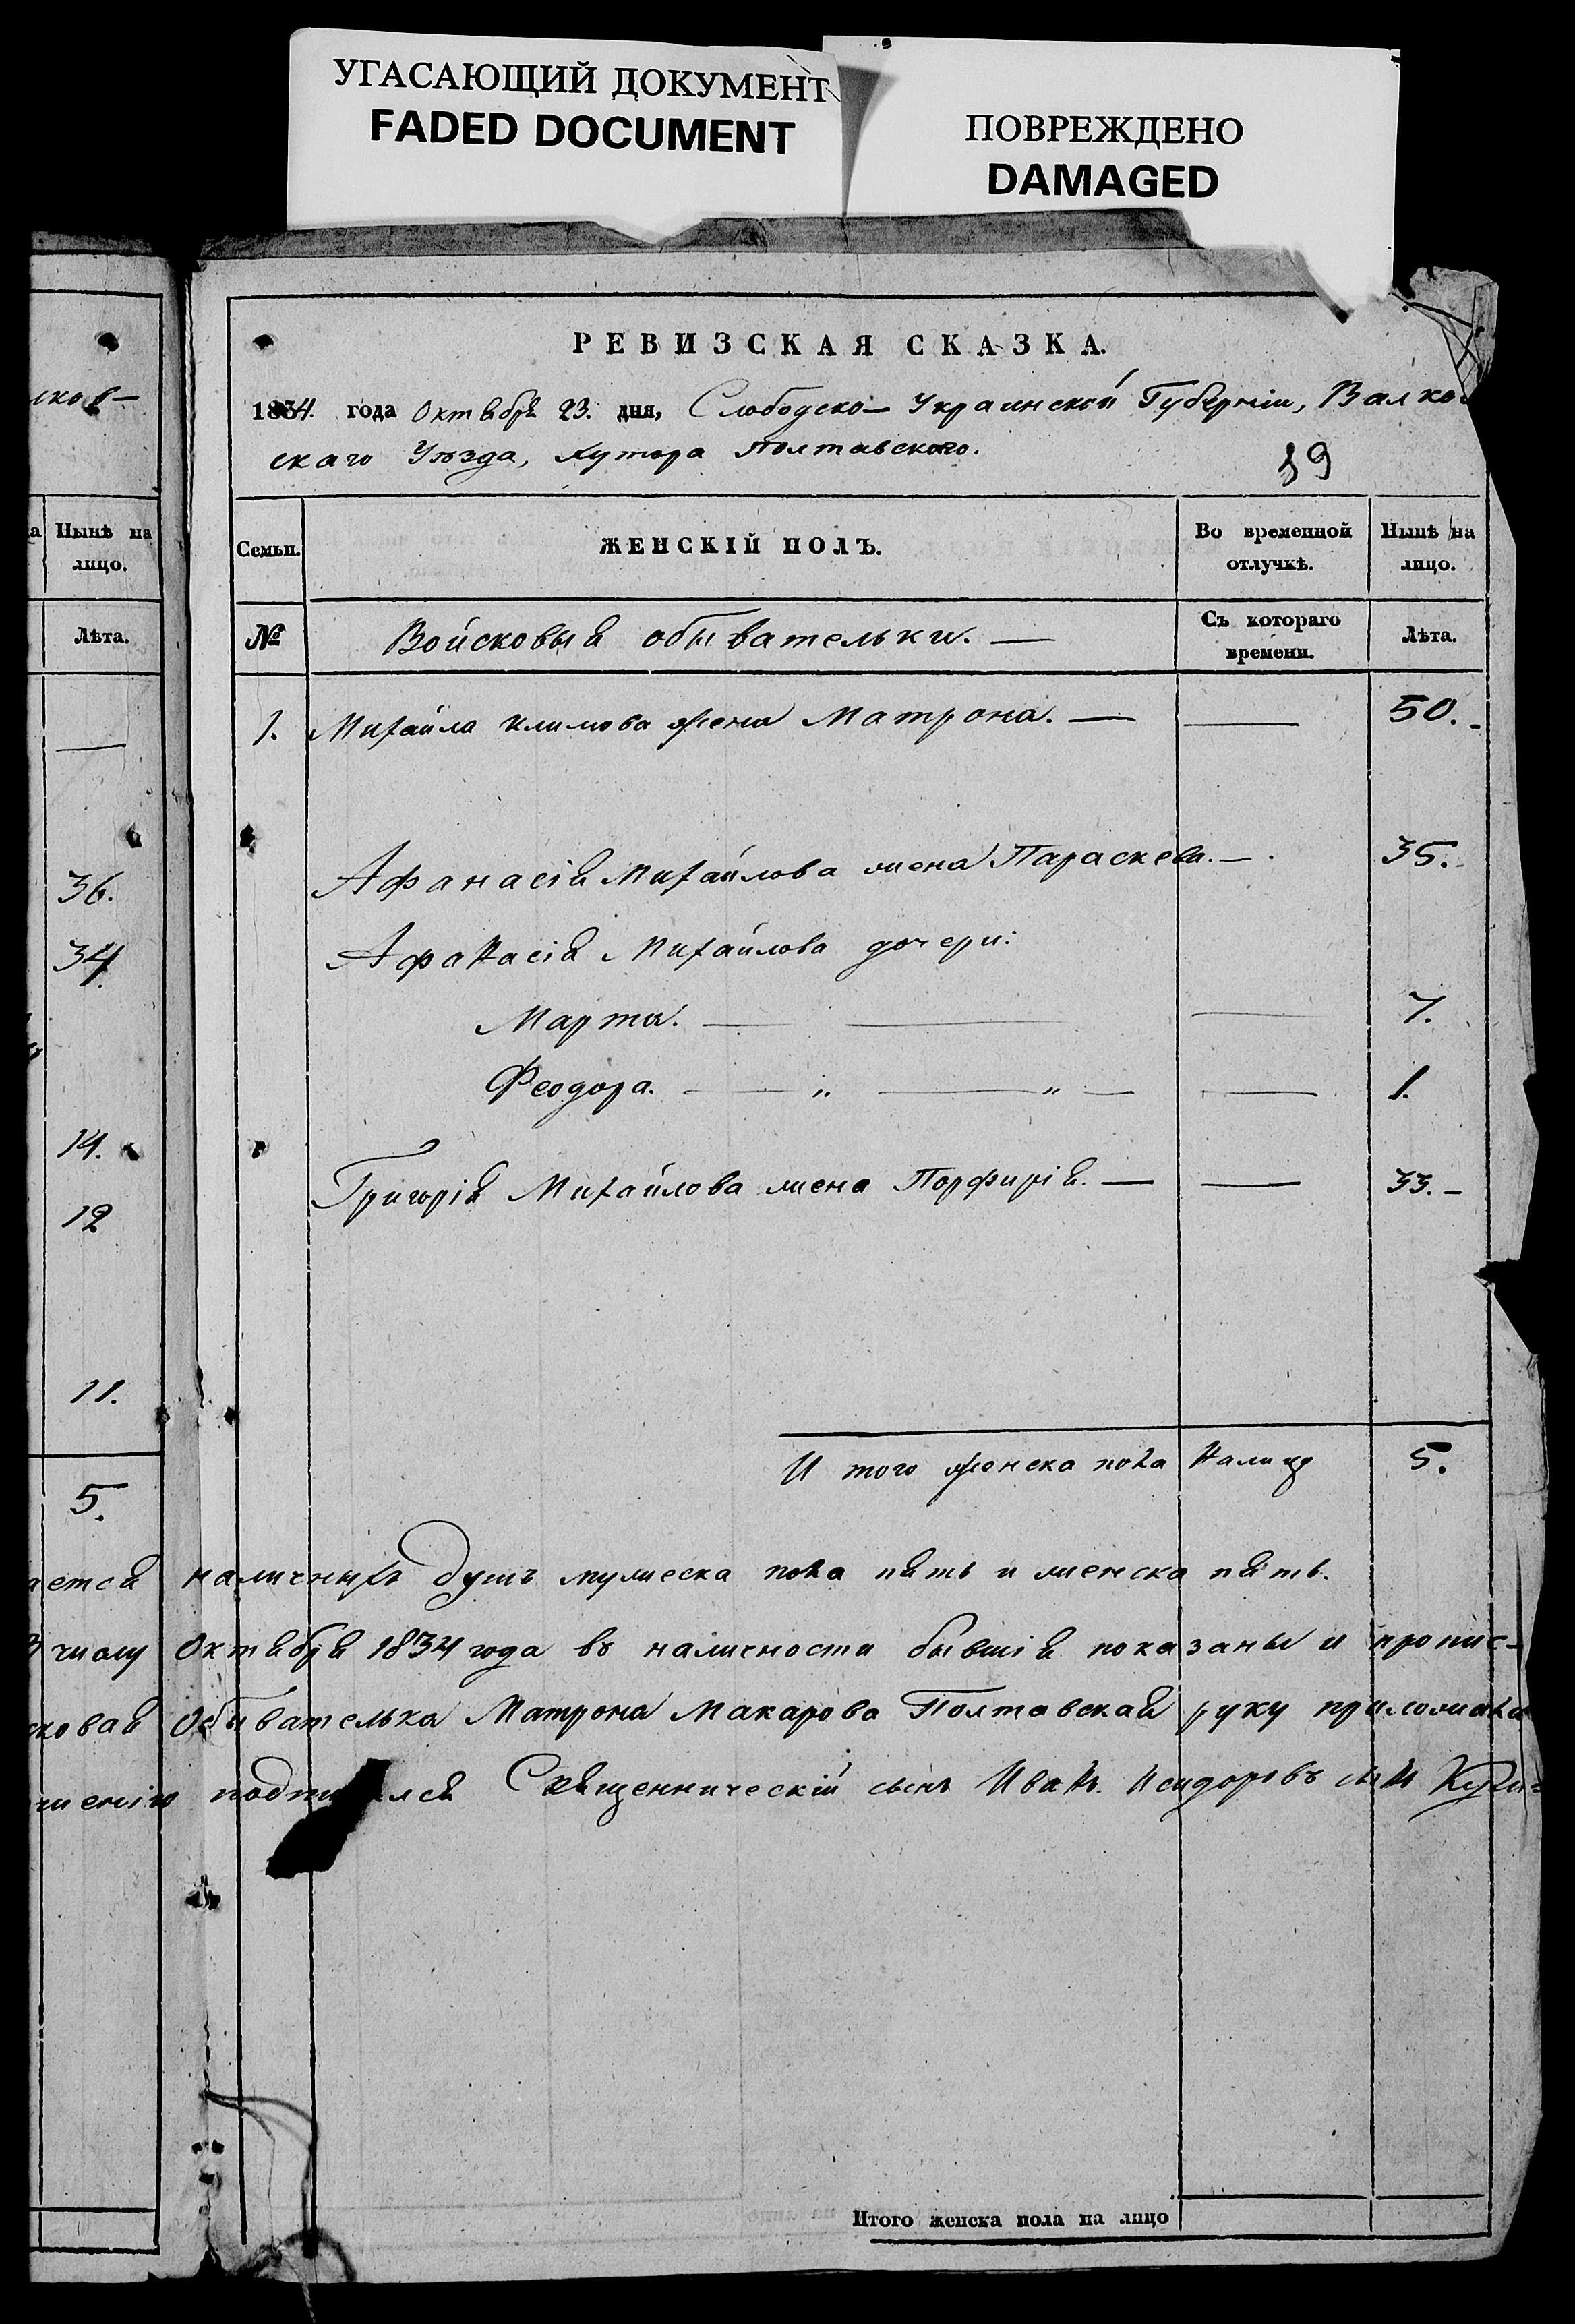 УГАСАЮЩИЙ ДОКУМЕНТ
FADED DOCUMENT
ПОВРЕЖДЕНО
DAMAGED
РЕВИЗСКАЯ СКАЗКА.
1834. года Октября 23. дня, Слободско-Украинской Губерніи, Валков
скаго Уѣзда, хутора Полтавского.
89
Семьи. ЖЕНСКІЙ ПОЛЪ. Во временной отлучкѣ. Нынѣ на лицо.
№ Войсковыя обывательки. — Съ котораго времени. Лѣта.
1. Михайла климова жена Матрона. — — 50. -
Афанасія Михайлова жена Параскева. — 35.
Афанасія Михайлова дочери:
Марта. — — — 7.
Феодора. — „ — „ — — 1.
Григорія Михайлова жена Порфирія. — — 33. -
И того женска пола Налицо 5.
ается наличныхъ душъ мужеска пола пять и женска пять.
числу Октября 1834 года въ наличности бывшія показаны и пропис-
ковая Обывателька Матрона Макарова Полтавская руку приложила
шенію Священническій сынъ Иванъ Исидоровъ сынъ
Итого женска пола на лицо
ков-
Нынѣ на лицо.
Лѣта.
—
36.
34.
14.
12
11.
5.